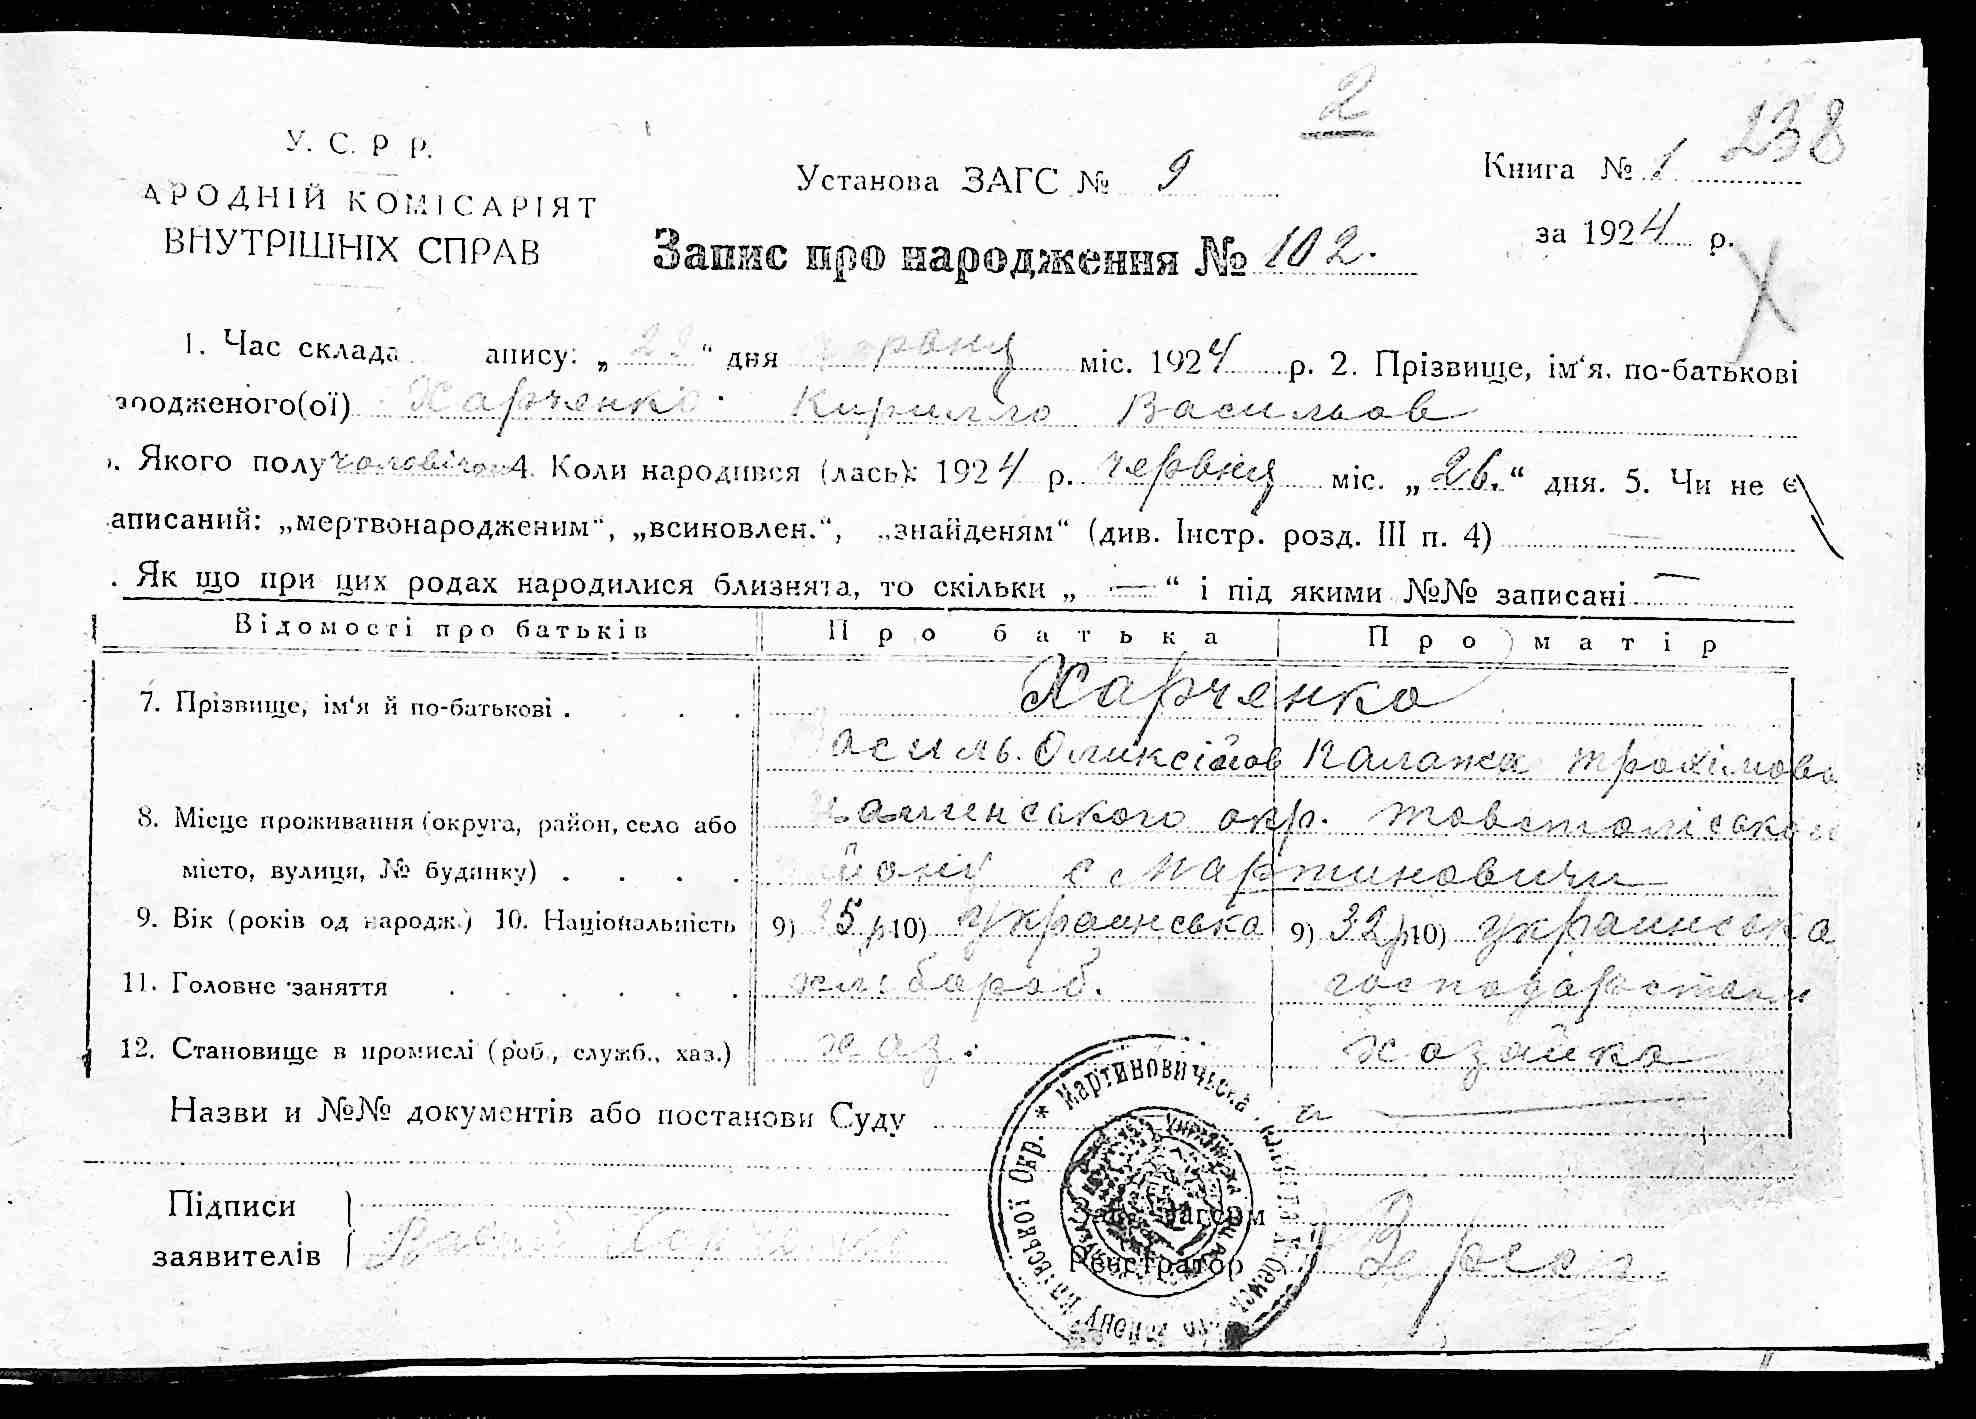 2
238
У. С. Р Р.
АРОДНІЙ КОМІСАРІЯТ
ВНУТРІШНІХ СПРАВ
Установа ЗАГС № 9
Книга № 1
за 1924 р.
Запис про народження № 102.
X
1. Час склада апису: „22“ дня міс. 1924 р. 2. Прізвище, ім‘я, по-батькові
родженого(ої) Харченко Кирилло Васильов
. Якого полу 4. Коли народився (лась): 1924 р. червня міс. „26.“ дня. 5. Чи не є
аписаний: „мертвонародженим“, „всиновлен.“, „знайденям“ (див. Інстр. розд. III п. 4) —
. Як що при цих родах народилися близнята, то скільки „ — “ і під якими №№ записані —
Відомості про батьків Про батька Про матір
7. Прізвище, ім‘я й по-батькові . . . . Харченко
Василь Оликсійов Палажа Трохімова
8. Місце проживання (округа, район, село або окр.
місто, вулиця, № будинку) . . . . йону с Мартиновичи
9. Вік (років од народж.) 10. Національність 9) 35 р 10) украинська 9) 32 р 10) украинська
11. Головне заняття . . . . . . хлібороб.
12. Становище в промислі (роб., служб., хаз.) хаз. хазяйка
Назви и №№ документів або постанови Суду —
Підписи
заявителів
Зав. загсом
Реєстратор